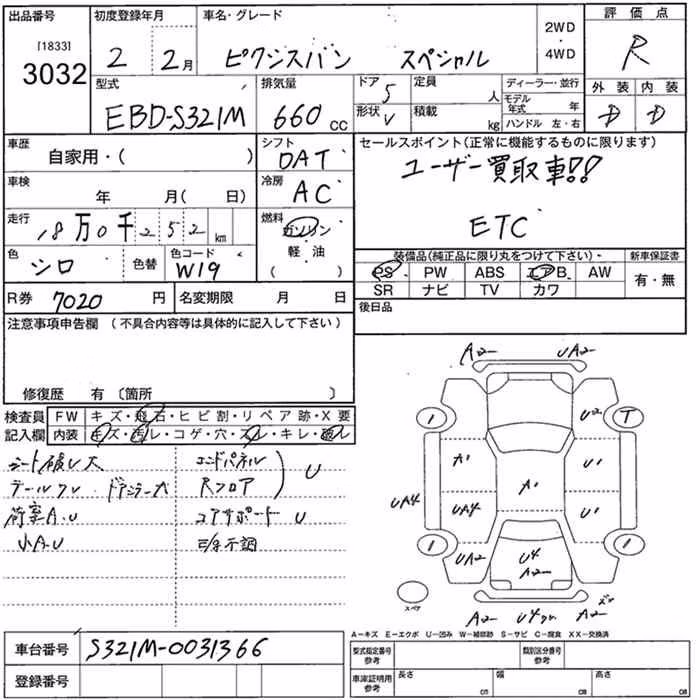 出品番号 初度登録年月 車名・グレード 2WD・4WD 評価点
[1833] 3032 2 2月 ピクシスバン スペシャル R
型式 排気量 ドア 5 定員 人 ディーラー・並行 外装 内装
EBD-S321M 660 CC 形状 V 積載 kg モデル年式 年 D D
ハンドル 左・右
車歴 自家用・( ) シフト OAT セールスポイント(正常に機能するものに限ります)
ユーザー買取車!!
車検 年 月( 日) 冷房 AC
ETC
走行 18万0千252km 燃料 ガソリン
軽・油
( )
色 シロ 色替 色コード W19
装備品(純正品に限り丸をつけて下さい)・ 新車保証書
PS PW ABS エアB AW 有・無
SR ナビ TV カワ
R券 7020 円 名変期限 月 日 後日品
注意事項申告欄 (不具合内容等は具体的に記入して下さい)
修復歴 有 〔箇所 〕
検査員 FW キズ・飛石・ヒビ割・リペア跡・X要
記入欄 内装 キズ・汚レ・コゲ・穴・スレ・キレ・破レ
シート破レ大 エンドパネル
テールワレ Rフロア U
荷室A.U コアサポート U
小A.U
A2 UA2
1 U2 T
A1 U1
UA4 A1
UA4 U1
1 UA2 U4 1
A2
スペア
A2 A2
A-キズ E-エクボ U-凹み W-補修跡 S-サビ C-腐食 XX-交換済
車台番号 S321M-0031366
登録番号
型式指定番号 参考 類別区分番号 参考
車庫証明用 参考 長さ cm 幅 cm 高さ cm